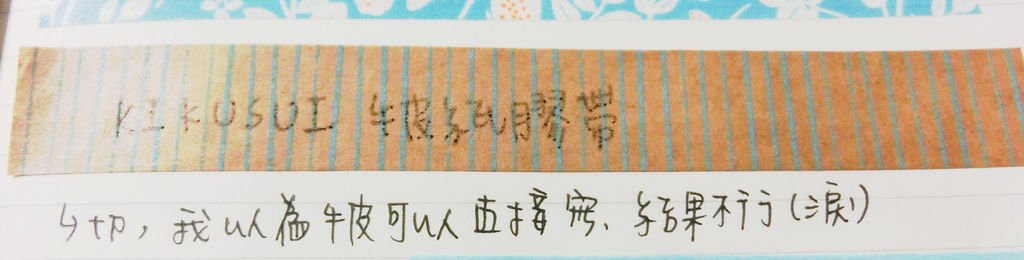 KIKUSUI 牛皮紙膠帶
ㄣ切，我以為牛皮可以直接寫、結果不行(淚)